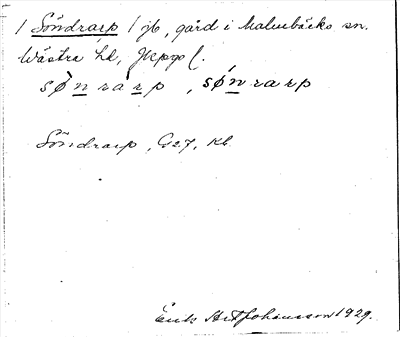 / Söndrarp / jb, gård i Malmbäcks sn.
Västra hd, Jkpgs l.
sø̀n̲raṟp , sǿn̲rarp
Söndrarp, G27, Kb.
Erik Art Johansson 1929.